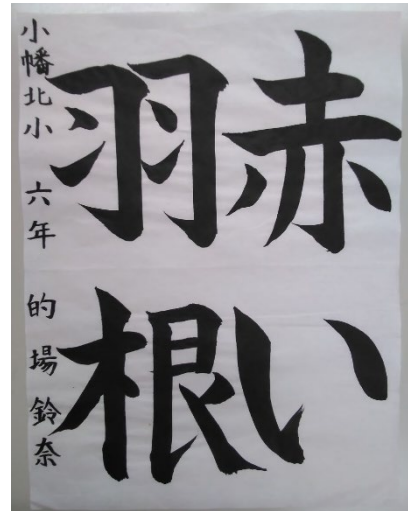 赤い
羽根
小幡北小 六年 的場鈴奈